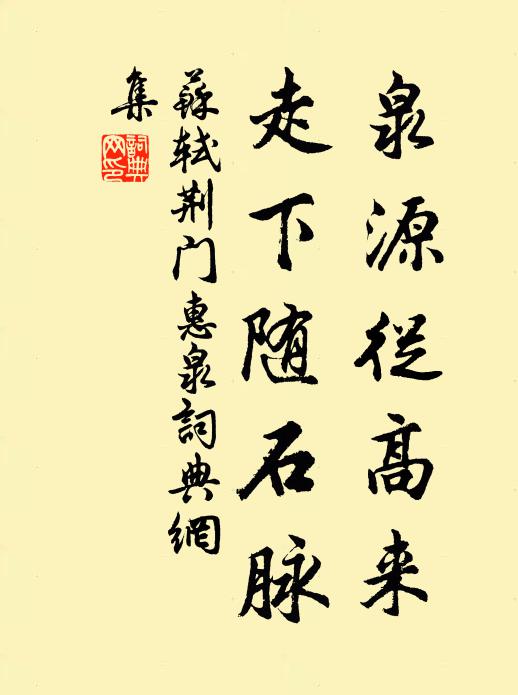 泉源從高来
走下随石脉
蘇軾荆门惠泉詞典網
集
詞典
网印